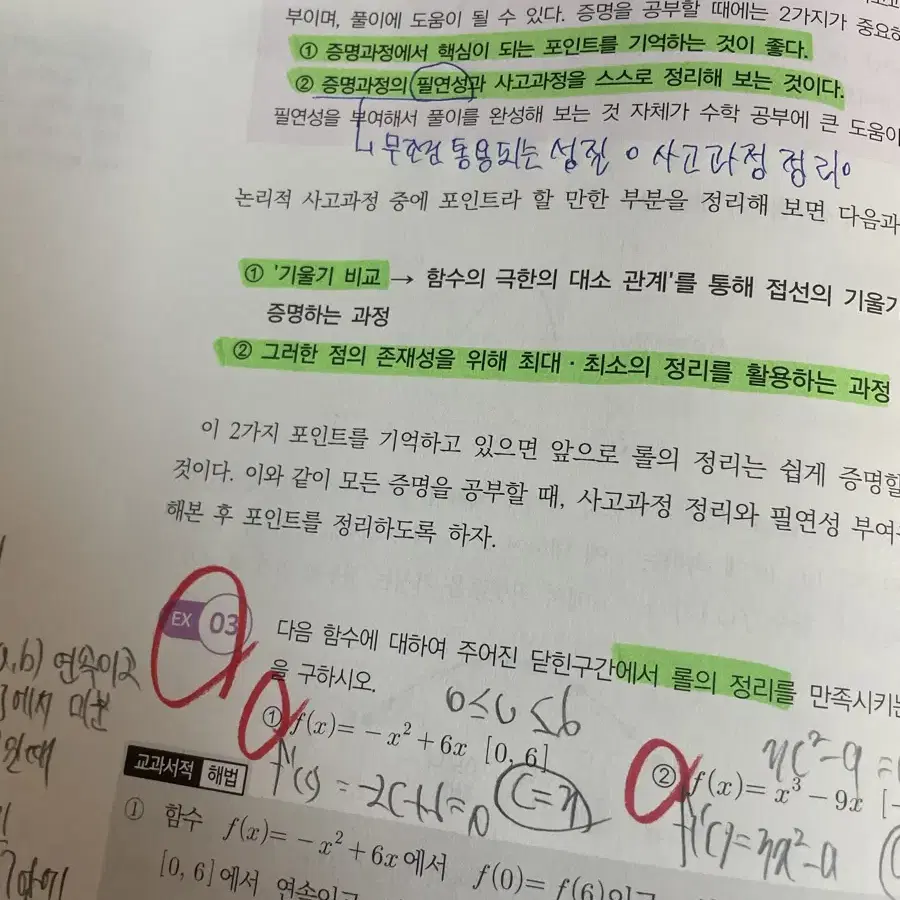 부이며, 풀이에 도움이 될 수 있다. 증명을 공부할 때에는 2가지가 중요하
① 증명과정에서 핵심이 되는 포인트를 기억하는 것이 좋다.
② 증명과정의 필연성과 사고과정을 스스로 정리해 보는 것이다.
필연성을 부여해서 풀이를 완성해 보는 것 자체가 수학 공부에 큰 도움이
무조건 통용되는 성질 사고과정 정리
논리적 사고과정 중에 포인트라 할 만한 부분을 정리해 보면 다음과
① '기울기 비교 → 함수의 극한의 대소 관계'를 통해 접선의 기울기
증명하는 과정
② 그러한 점의 존재성을 위해 최대·최소의 정리를 활용하는 과정
이 2가지 포인트를 기억하고 있으면 앞으로 롤의 정리는 쉽게 증명할
것이다. 이와 같이 모든 증명을 공부할 때, 사고과정 정리와 필연성 부여
해본 후 포인트를 정리하도록 하자.
EX 03
다음 함수에 대하여 주어진 닫힌구간에서 롤의 정리를 만족시키는
을 구하시오.
0≤c≤6
① f(x)=-x²+6x [0, 6]
② f(x)=x³-9x [-
f'(c)=-2c+6=0
a,b) 연속이고
에서 미분
교과서적 해법
① 함수 f(x)=-x²+6x에서 f(0)=f(6)이고
[0, 6]에서 연속이고